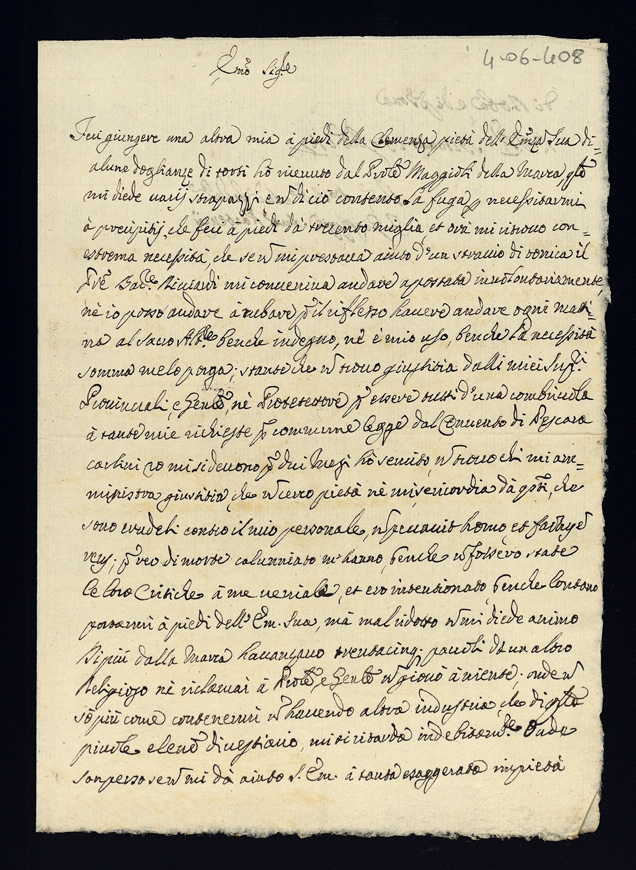 4-06-408
Emo Sigre
Feci giungere una altra mia à piedi della Clemenza pietà dell' Emza Sua di=
alcune doglianze di torti hò ricevuto dal Prole Maggioli della Marca, qto
mi diede varij strapazzi e n di ciò contento la fuga, p necessitarmi
à precipitij, che feci à piedi da trecento miglia et ora mi ritrovo con
estrema necessità, che se n mi prestava aiuto d'un straccio di tonica il
Pre Bacre Ricciardi mi conveniva andare apostata involontariamente
nè io posso andare à rubare p il riflesso havere andare ogni mati=
na al sacro Altre benche indegno, nè è mio uso, benche la necessità
somma me lo porga; stante che n trovo giustitia dalli miei Supri
Provinciali, e Genle, nè Protettore p essere tutti d'una combricola
à tante mie richieste p commune legge dal Convento di Pescara
carlini 20 mi si devono p dui mesi hò servito, n trovo chi mi am=
ministra giustitia, che n cerco pietà nè misericordia dà qsti, che
sono crudeli contro il mio personale, n peccavit homo et
p reo di morte calunniato m'hanno, benche n fossero state
le loro Critiche à me veniale, et ero intentionato benche lontano
portarmi à piedi dell' Em. Sua, mà mal ridotto n mi diede animo
Di più dalla Marca havanzavo trentacinq; paoli da un altro
Religioso nè reclamai à Prole, e Genle n giovò à niente, onde n
sò più come contenermi n havendo altra industria, che di qsto
piccole elene di vestiario, mi si ritarda indebitamte Onde
son perso se n mi dà aiuto S. Em. à tanta esaggerata impietà